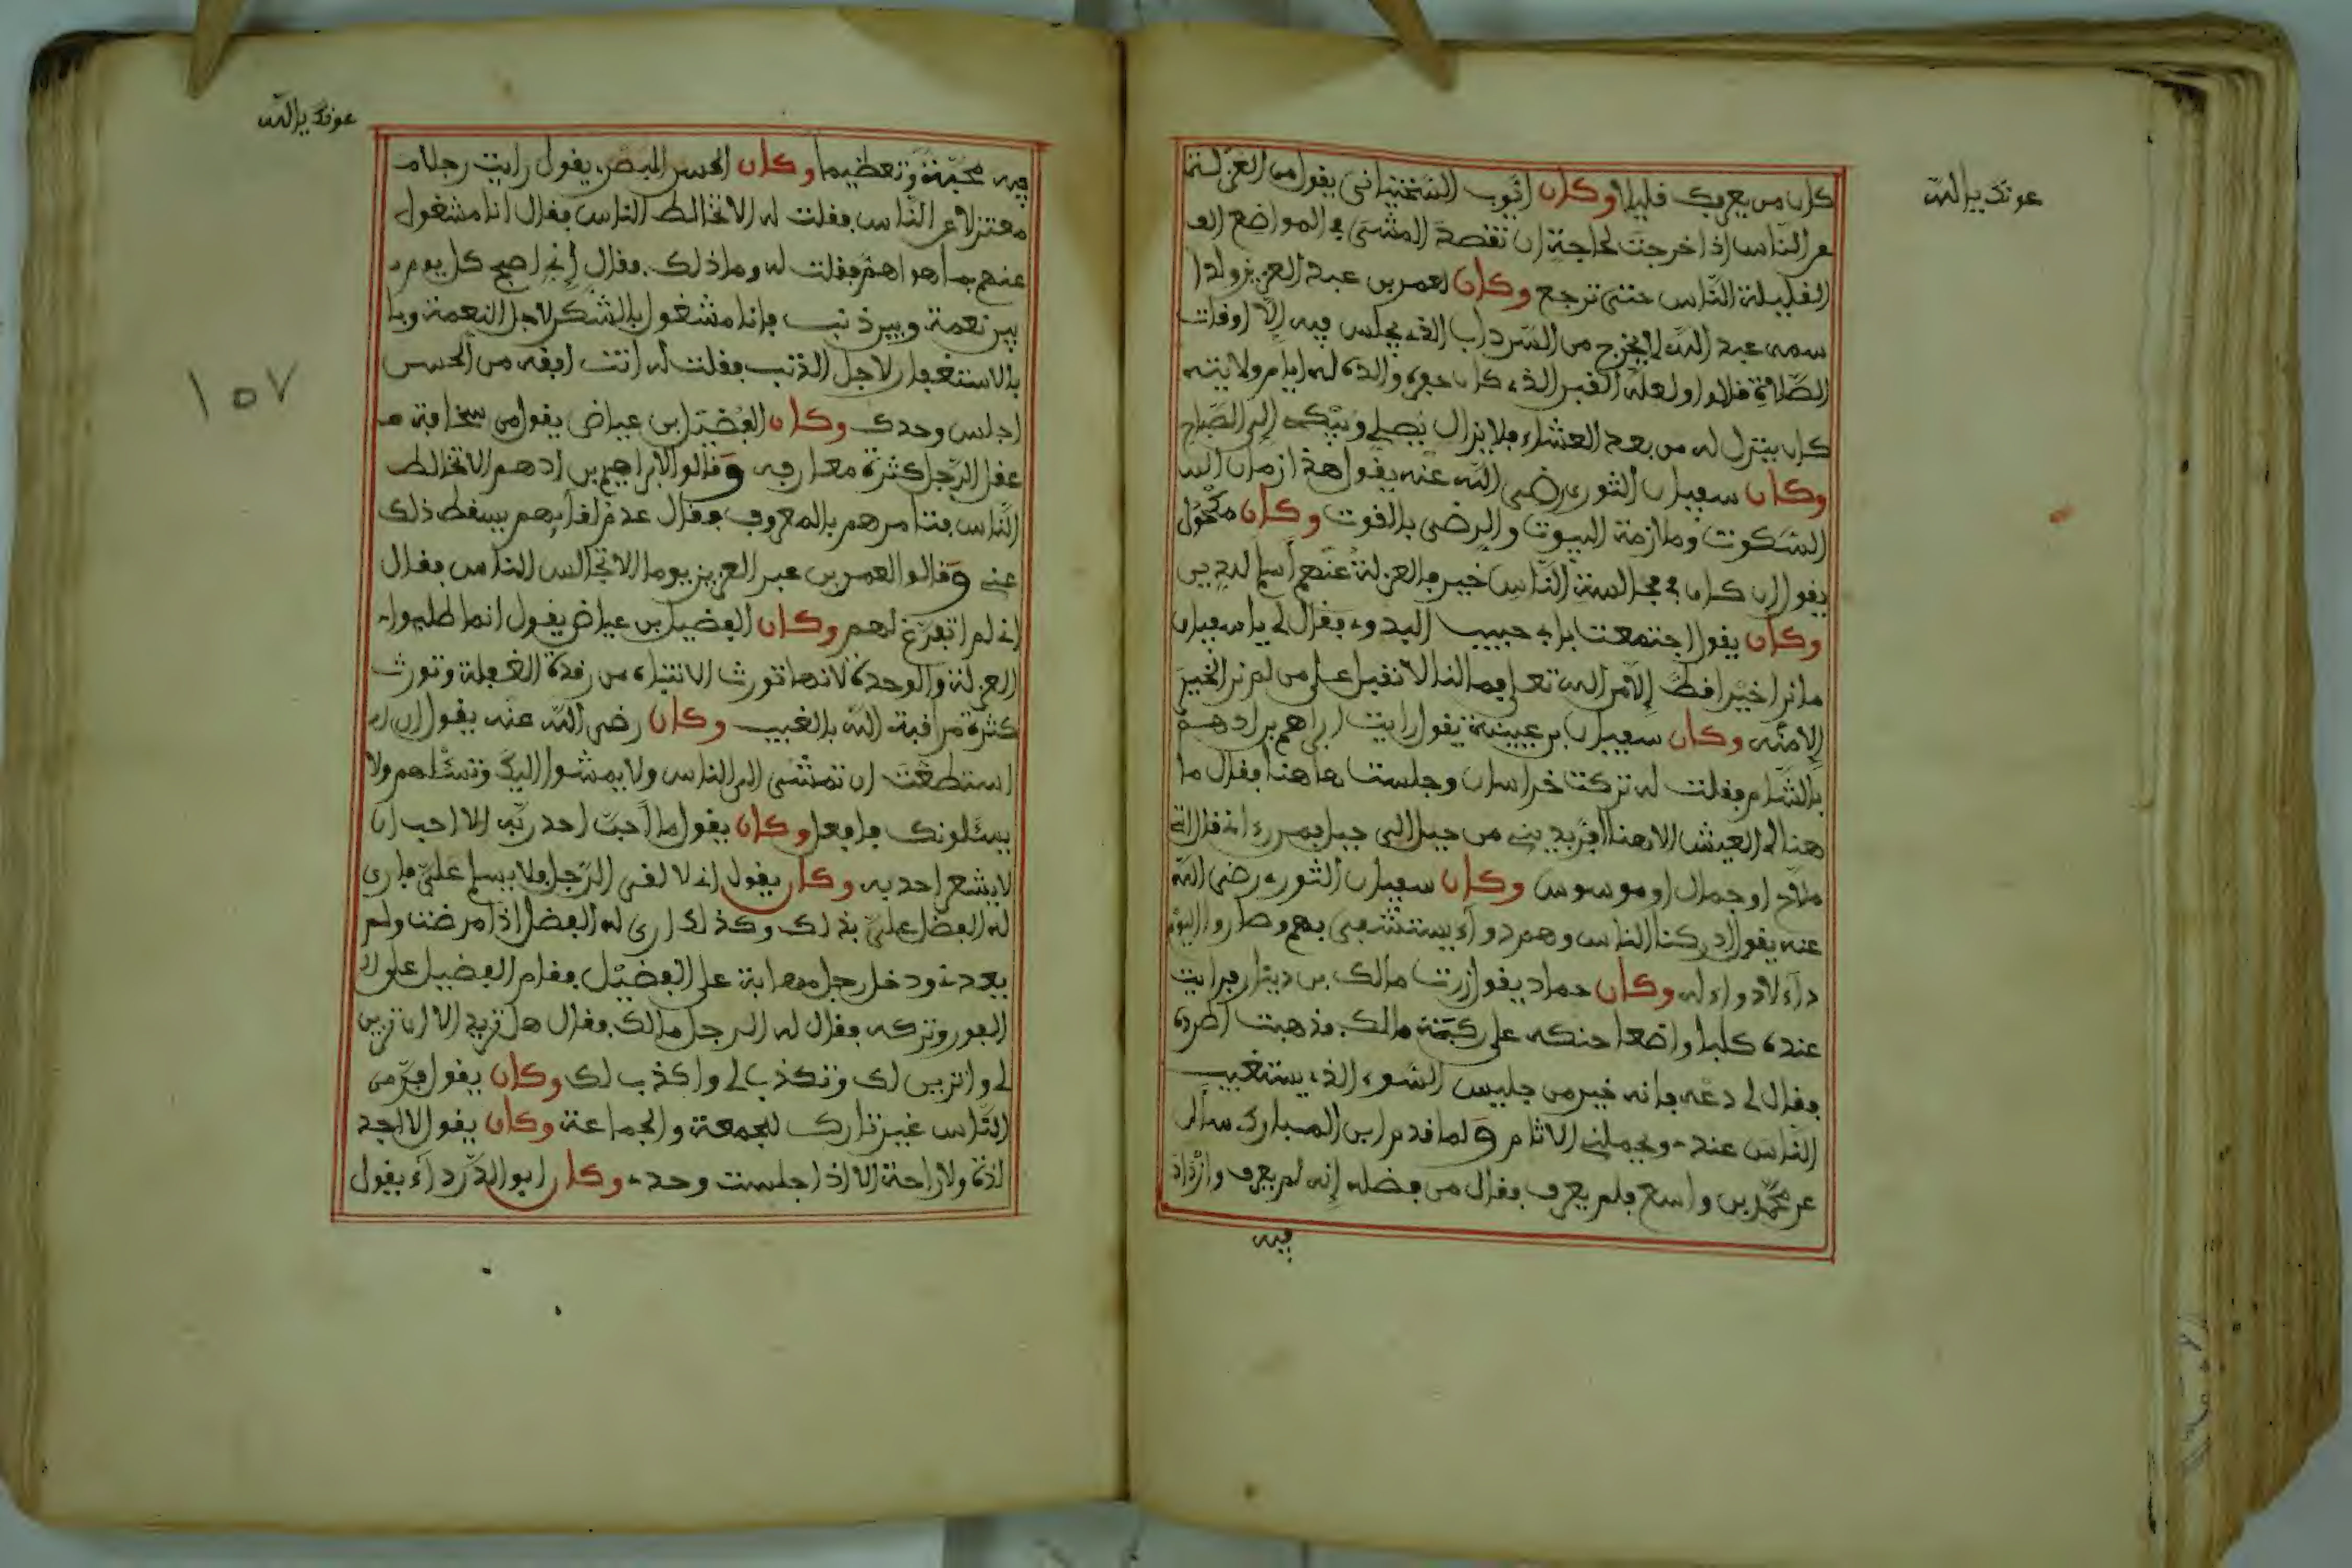 عونك يا الله
كان من يعرفك قليلا وكان ايوب السختياني يقول من العزلة
عن الناس اذا خرجت لحاجة ان تقصد المشي في المواضع
القليلة الناس حتى ترجع وكان لعمر بن عبد العزيز ولدا
سمه عبد الله لا يخرج من السرداب الذي يجلس فيه الا اوقات
الصلاة قالوا ولعله القبر الذي كان حفره والده له ايام ولايته
كان ينزل له من بعد العشاء فلا يزال يصلي ويبكي الى الصباح
وكان سفيان الثوري رضي الله عنه يقول هذا زمان
السكوت وملازمة البيوت والرضى بالقوت وكان مكحول
يقول ان كان في مجالسة الناس خير فالعزلة عنهم اسلم للدين
وكان يقول اجتمعت بابي حبيب البدوي فقال لي يا سفيان
ما نرا خيرا قط الا من الله تعلى فما لنا لا نقبل على من لم نر الخير
الا منه وكان سفيان بن عيينة يقول رايت ابراهيم بن ادهم
بالشام فقلت له تركت خراسان وجلست هاهنا فقال ما
هنا لي العيش الا هنا افر بديني من جبل الى جبل فمن رءاني قال اني
ملاح او جمال او موسوس وكان سفيان الثوري رضي الله
عنه يقول ادركنا الناس وهم دواء يستشفى بهم وصاروا اليوم
داء لا دواء له وكان حماد يقول زرت مالك بن دينار فرايت
عنده كلبا واضعا حنكه على ركبة مالك فذهبت اطرده
فقال لي دعه فانه خير من جليس السوء الذي يستغيب
الناس عندي ويحملني الاثام ولما قدم ابن المبارك سأل
عن محمد بن واسع فلم يعرف فقال من فضله انه لم يعرف وازداد
فيه
عونك يا الله
١٥٧
فيه محبة وتعظيما وكان الحسن البصري يقول رايت رجلا
معتزلا عن الناس فقلت له الا تخالط الناس فقال انا مشغول
عنهم بما هو اهم فقلت له وما ذلك فقال اني اصبح كل يوم
بين نعمة وبين ذنب فانا مشغول بالشكر لاجل النعمة و
بالاستغفار لاجل الذنب فقلت له انت افقه من الحسن
اجلس وحدك وكان الفضيل ابن عياض يقول من سخافة
عقل الرجل كثرة معارفه وقالوا لابراهيم بن ادهم الا تخالط
الناس فتامرهم بالمعروف فقال عدم لقايهم يسقط ذلك
عني وقالوا لعمر بن عبد العزيز يوما الا تجالس الناس فقال
اني لم اتفرغ لهم وكان الفضيل بن عياض يقول انما طلبوا
العزلة والوحدة لانها تورث الانتباه من رقدة الغفلة وتورث
كثرة مراقبة الله بالغيب وكان رضي الله عنه يقول ان
استطعت ان تمشي الى الناس ولا يمشوا اليك وتسئلهم ولا
يسئلونك فافعل وكان يقول ما احب احد ربه الا احب ان
لا يشعر احد به وكان يقول اني لا لقى الرجل ولا يسلم علي فارى
له الفضل علي بذلك وكذلك ارى له الفضل اذا مرضت ولم
يعدني ودخل رجل مهابة على الفضيل فقام الفضيل على
الفور وتركه فقال له الرجل مالك فقال هل تريد الا ان تزين
لي واتزين لك وتكذب لي واكذب لك وكان يقول فر من
الناس غير تارك للجمعة والجماعة وكان يقول لا اجد
لذة ولا راحة الا اذا جلست وحدي وكان ابو الدرداء يقول